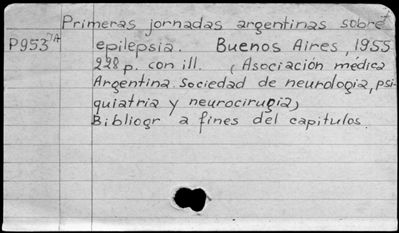 Primeras jornadas argentinas sobre
P953JA epilepsia. Buenos Aires, 1955
228 p. con ill. (Asociación médica
Argentina. Sociedad de neurologia, psi-
quiatria y neurocirugia)
Bibliogr a fines del capitulos